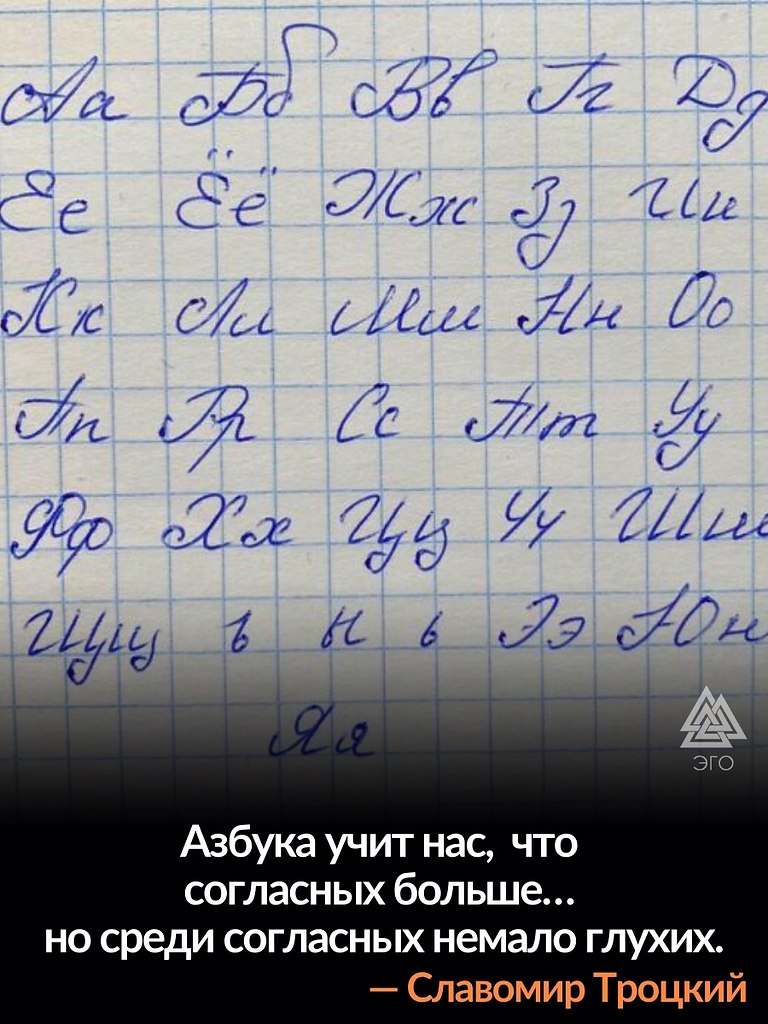 Аа Бб Вв Гг Дд
Ее Ёё Жж Зз Ии
Кк Лл Мм Нн Оо
Пп Рр Сс Тт Уу
Фф Хх Цц Чч Шш
Щщ ъ ы ь Ээ Юю
Яя
ЭГО
Азбука учит нас, что
согласных больше...
но среди согласных немало глухих.
— Славомир Троцкий